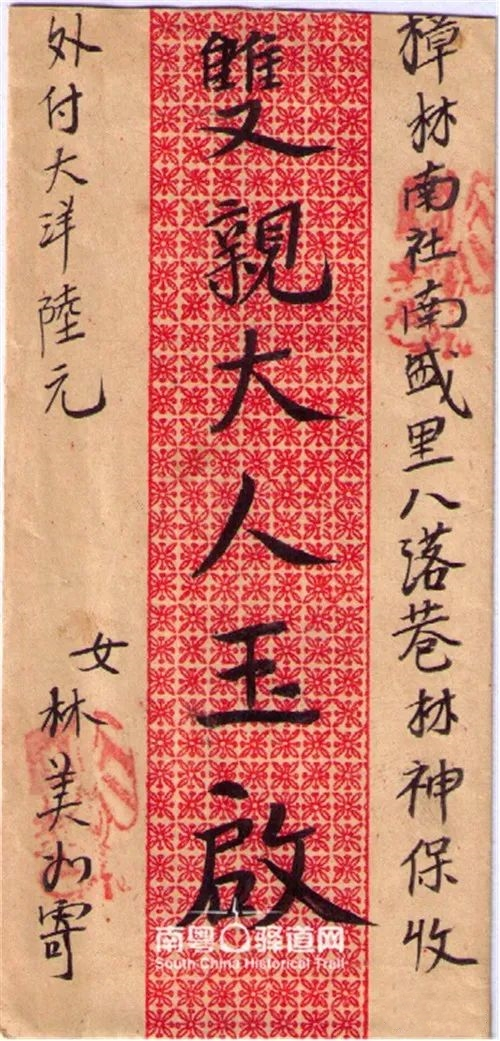 樟林南社南盛里八落巷林神保收
雙親大人玉啟
外付大洋陸元
女林美如寄
南粤驿道网
South China Historical Trail